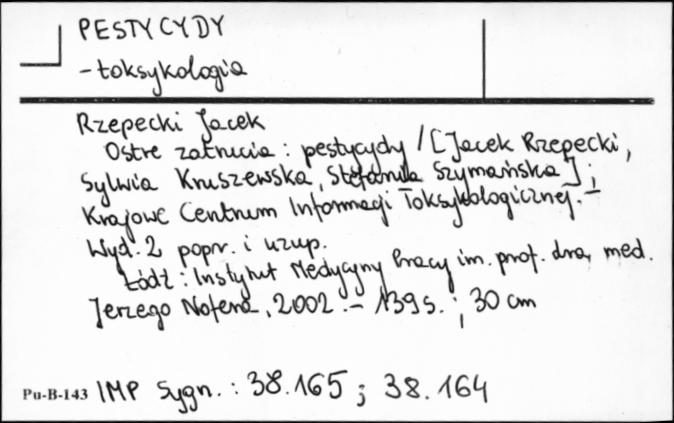 PESTYCYDY
- toksykologia
Rzepecki Jacek
Ostre zatrucia : pestycydy / [Jacek Rzepecki,
Sylwia Kruszewska, Stefania Szymańska] ;
Krajowe Centrum Informacji Toksykologicznej. -
Wyd. 2 popr. i uzup.
Łódź : Instytut Medycyny Pracy im. prof. dra med.
Jerzego Nofera, 2002. - 139 s. ; 30 cm
Pu-B-143 IMP Sygn. : 38.165 ; 38.164